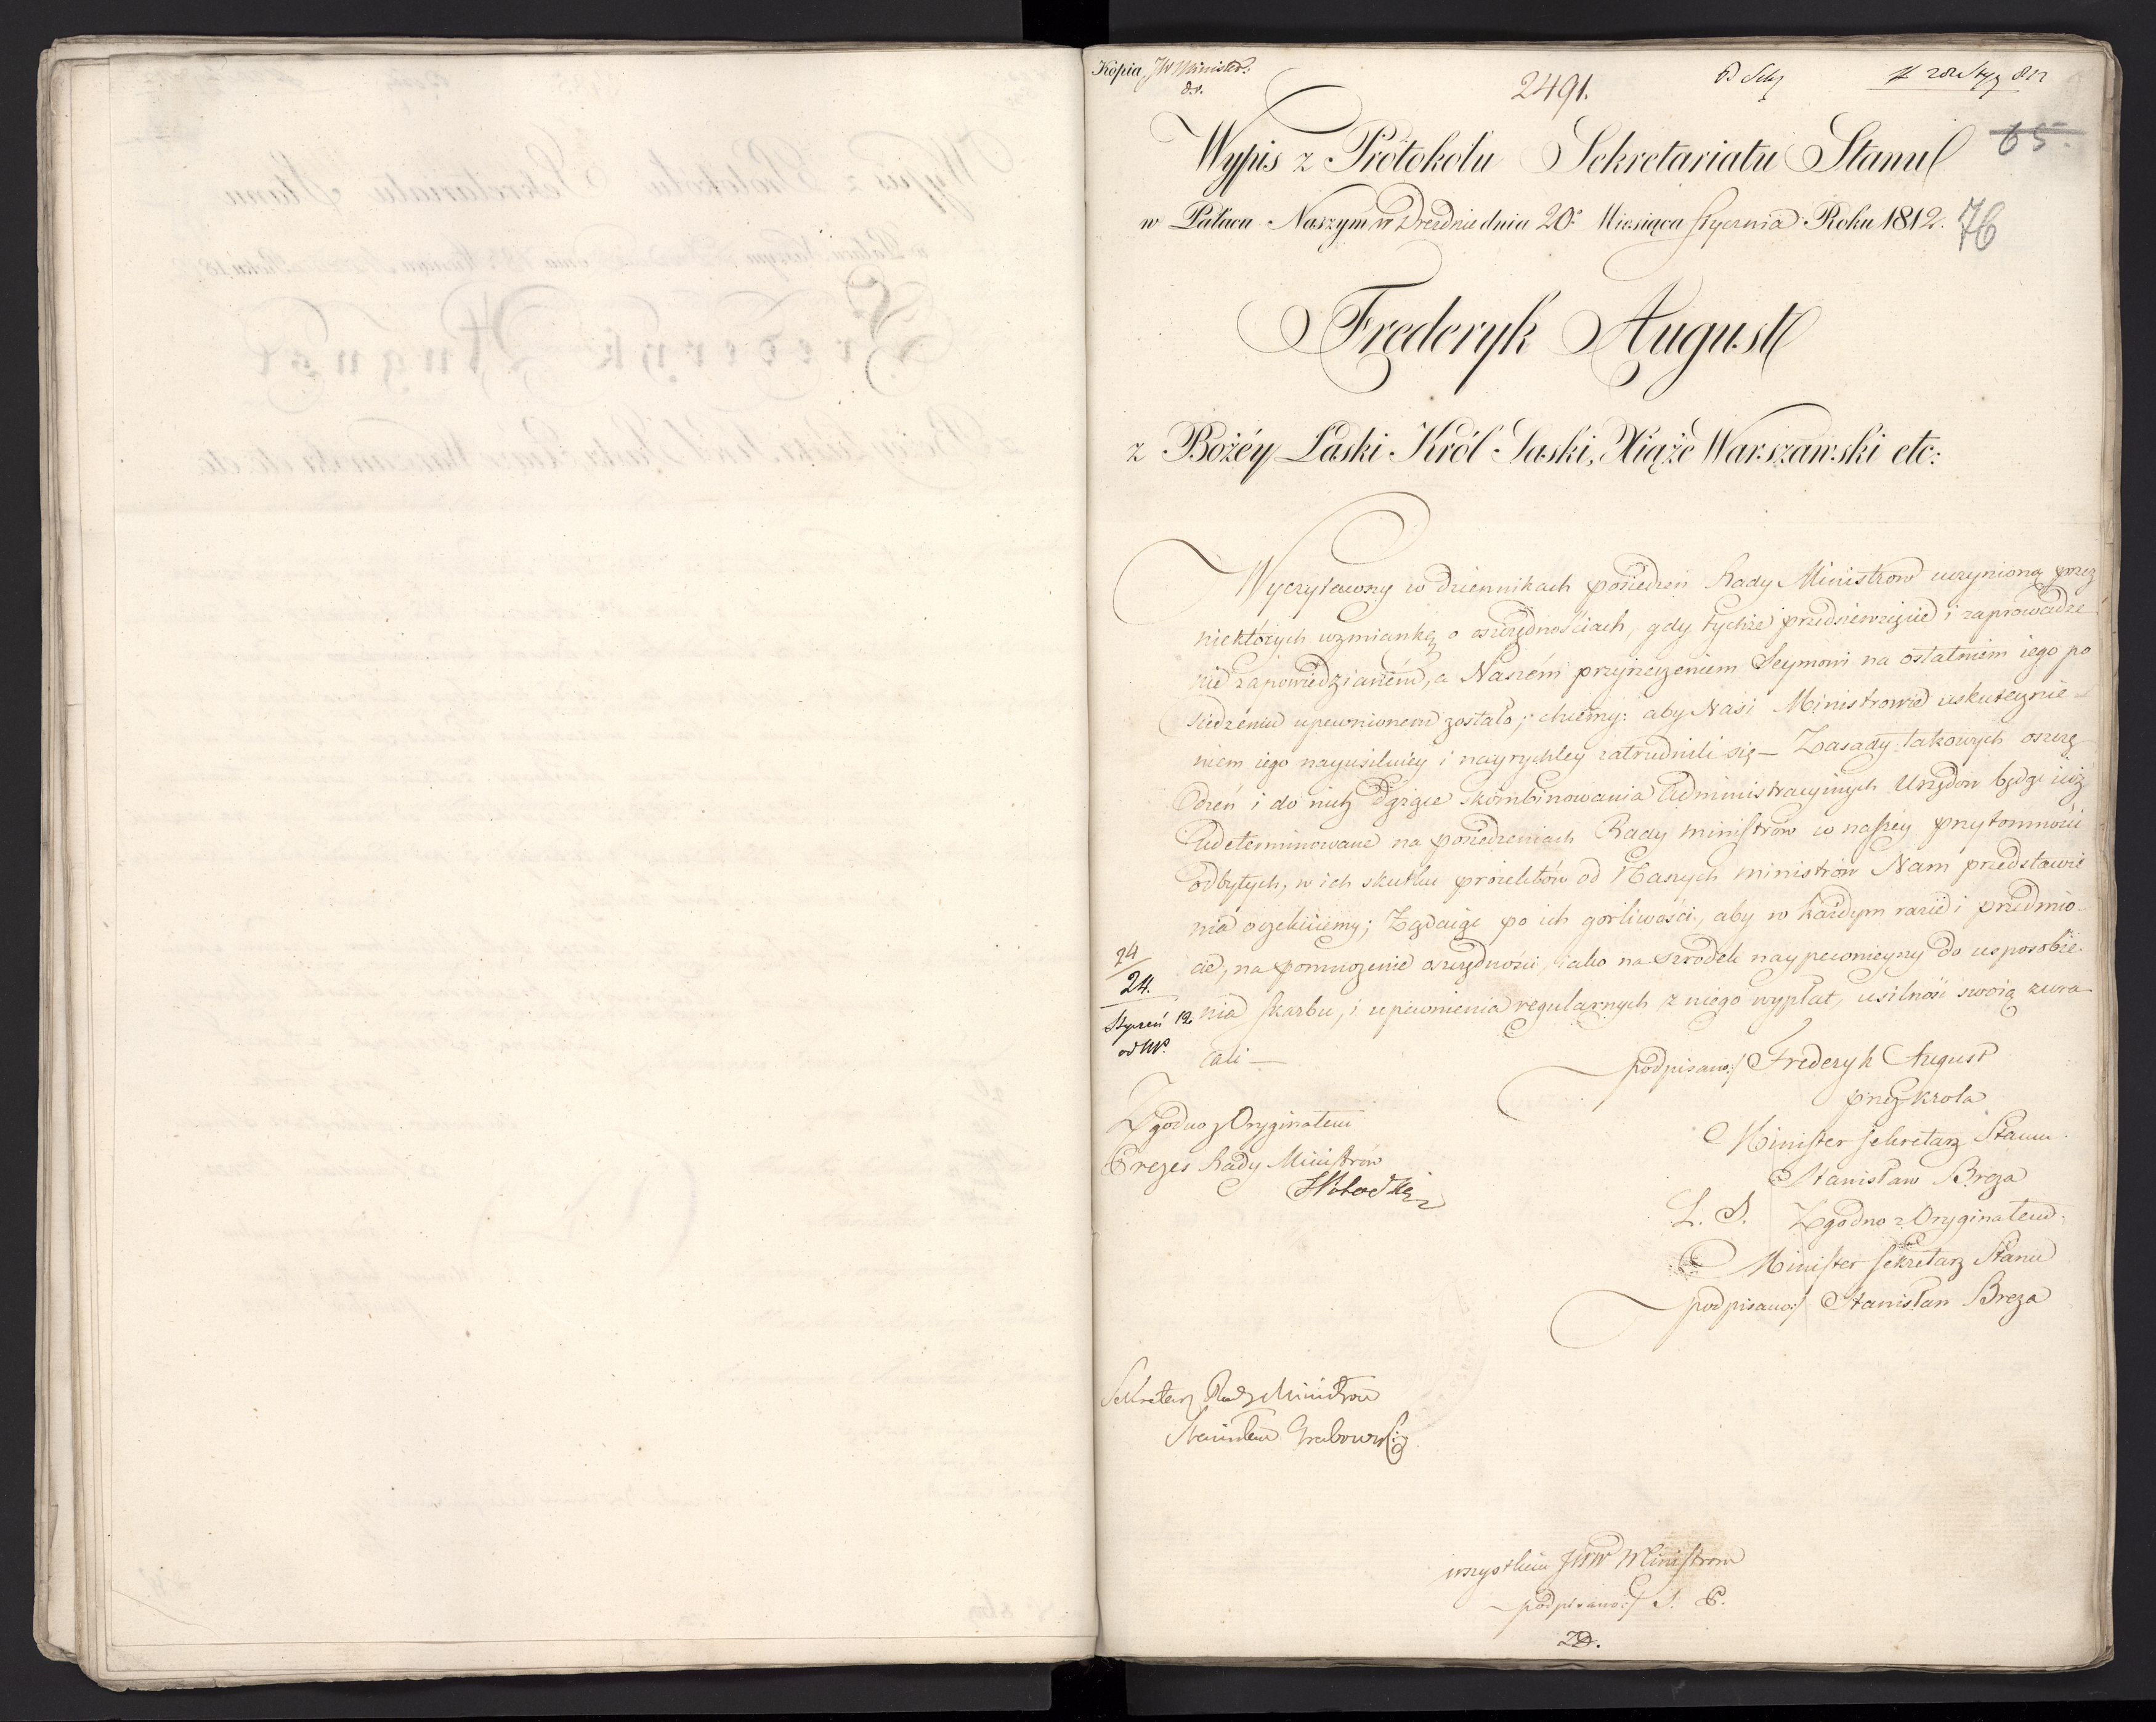 Kopia JW Minister.
2491.
65.
Wypis z Protokołu Sekretariatu Stanu
w Pałacu Naszym w Dreznie dnia 20º Miesiąca Stycznia Roku 1812.
76
Frederyk August
z Bożéy Łaski Król Saski, Xiąże Warszawski etc:
Wyczytawszy w dziennikach posiedzeń Rady Ministrow uczynioną przez
niektórych wzmiankę o oszczędnościach, gdy tychże przedsiewzięcie i zaprowadze
nie zapowiedzianém, a Naszém przyrzeczeniem Seymowi na ostatniem iego po
siedzeniu upewnionem zostało; chcemy: aby Nasi Ministrowie uskutecznie-
niem iego nayusilniey i nayrychley zatrudnili się — Zasady takowych oszczę
dzeń i do nich dążące skombinowania Administracyinych Urzędow będąc iuż
udeterminowane na posiedzeniach Rady ministrów w naszey przytomności
odbytych, w ich skutku proiektów od Naszych ministrów Nam przedstawie
nia oczekuiemy; Żądaiąc po ich gorliwości, aby w każdym razie i przedmio-
cie, na pomnożenie oszczędności, iako na szrodek naypewnieyszy do usposobie-
nia skarbu, i upewnienia regularnych z niego wypłat, usilność swoią zwra-
cali —
24
24.
Styczeń 12
od M.
podpisano:/ Frederyk August
przez Krola
Minister Sekretarz Stanu
Stanisław Breza
L. S. Zgodno z Oryginałem
Minister Sekretarz Stanu
podpisano:/ Stanisław Breza
Zgodno z Oryginałem
Prezes Rady Ministrów
SPotocki
Sekretarz Rady Ministrow
Stanisław Grabowski
wszystkim JWW Ministrom
podpisano:/ S. P.